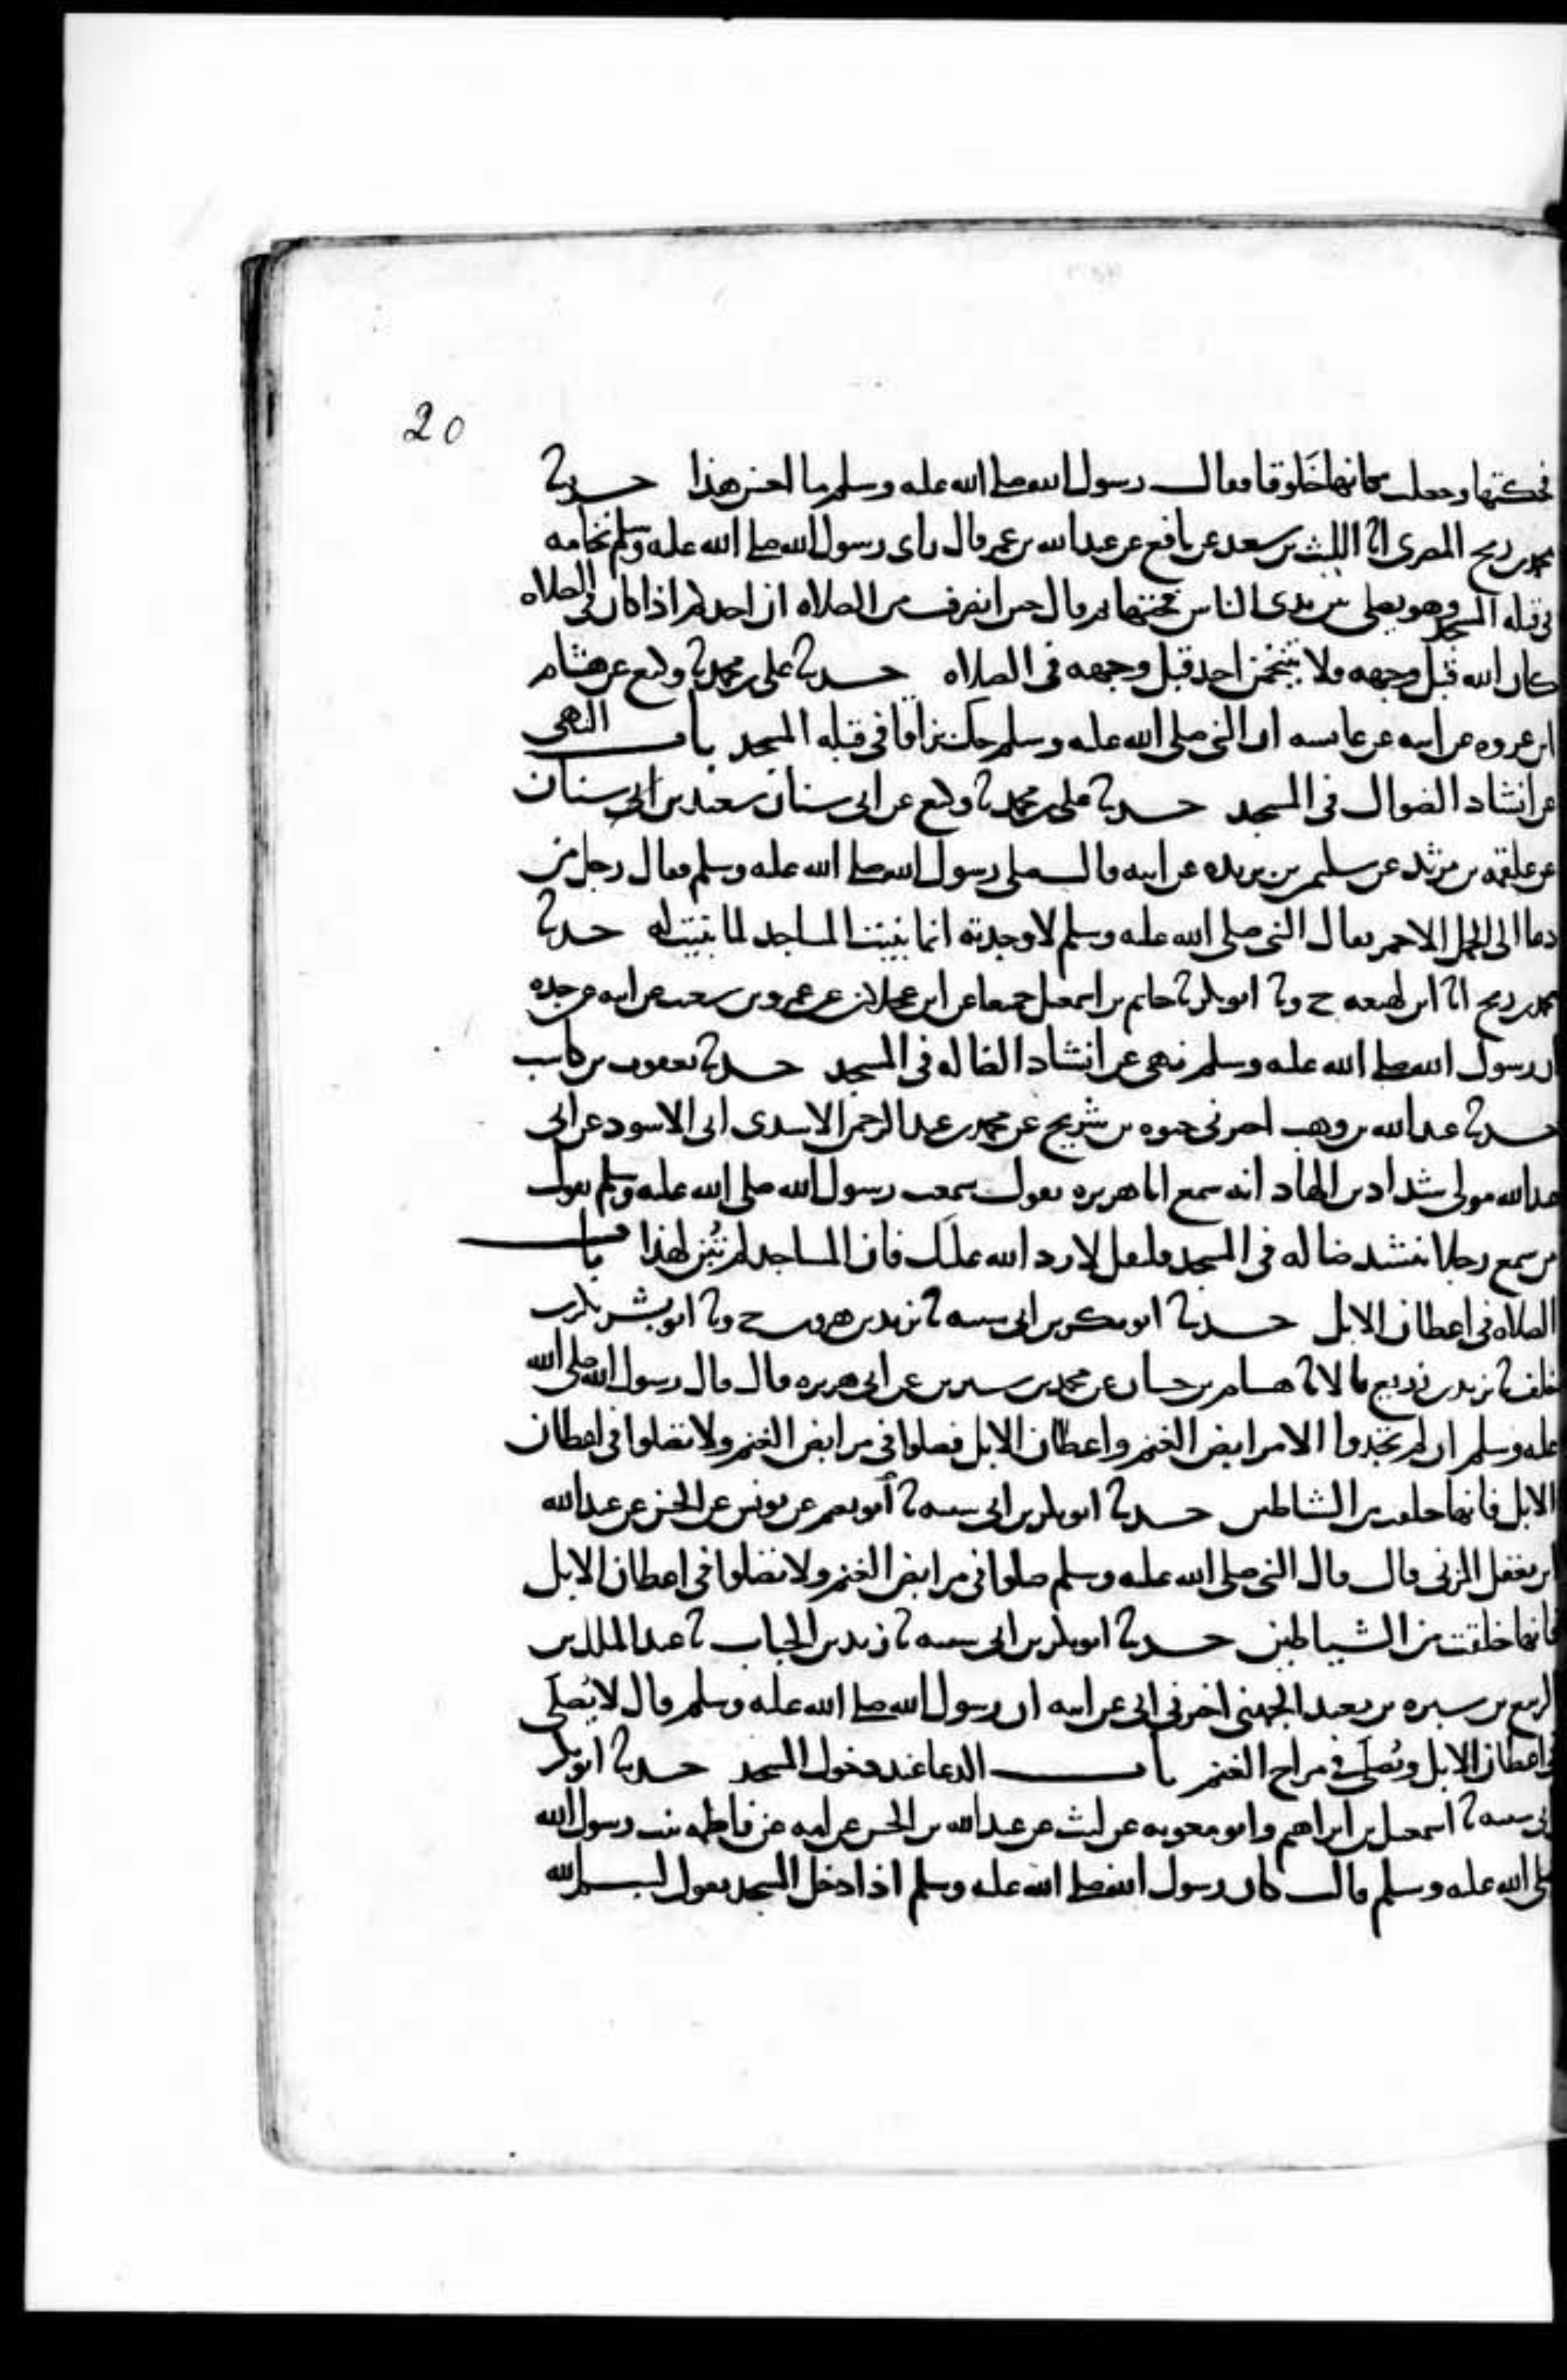 20
فحكتها وجعلت مكانها خلوقا فقال رسول الله صلى الله عليه وسلم ما احسن هذا حدثنا
محمد بن رمح المصرى انا الليث بن سعد عن نافع عن عبد الله بن عمر قال راى رسول الله صلى الله عليه وسلم نخامه
فى قبله المسجد وهو يصلى بين يدى الناس فحتها ثم قال حين انصرف من الصلاه ان احدكم اذا كان فى الصلاه
كان الله قبل وجهه فلا يتنخمن احد قبل وجهه فى الصلاه حدثنا على بن محمد نا وكيع عن هشام
ابن عروه عن ابيه عن عايشه ان النبى صلى الله عليه وسلم حك بزاقا فى قبله المسجد باب النهى
عن انشاد الضوال فى المسجد حدثنا على بن محمد نا وكيع عن ابى سنان سعيد بن ابى سنان
عن علقمه بن مرثد عن سليمن بن بريده عن ابيه قال صلى رسول الله صلى الله عليه وسلم فقال رجل من
دعا الى الجمل الاحمر فقال النبى صلى الله عليه وسلم لا وجدته انما بنيت المساجد لما بنيت له حدثنا
محمد بن رمح انا ابن لهيعه ح ونا ابو بكر نا حاتم بن اسمعيل جميعا عن ابن عجلان عن عمرو بن شعيب عن ابيه عن جده
ان رسول الله صلى الله عليه وسلم نهى عن انشاد الضاله فى المسجد حدثنا يعقوب بن كاسب
حدثنا عبد الله بن وهب اخبرنى حيوه بن شريح عن محمد بن عبد الرحمن الاسدى ابى الاسود عن ابى
عبد الله مولى شداد بن الهاد انه سمع ابا هريره يقول سمعت رسول الله صلى الله عليه وسلم يقول
من سمع رجلا ينشد ضاله فى المسجد فليقل لا رد الله عليك فان المساجد لم تبن لهذا باب
الصلاه فى اعطان الابل حدثنا ابو بكر بن ابى شيبه نا يزيد بن هرون ح ونا ابو بشر بكر بن
خلف نا يزيد بن زريع قالا نا هشام بن حسان عن محمد بن سيرين عن ابى هريره قال قال رسول الله صلى الله
عليه وسلم ان لم تجدوا الا مرابض الغنم واعطان الابل فصلوا فى مرابض الغنم ولا تصلوا فى اعطان
الابل فانها خلقت من الشياطين حدثنا ابو بكر بن ابى شيبه نا ابو نعيم عن يونس عن الحسن عن عبد الله
ابن مغفل المزنى قال قال النبى صلى الله عليه وسلم صلوا فى مرابض الغنم ولا تصلوا فى اعطان الابل
فانها خلقت من الشياطين حدثنا ابو بكر بن ابى شيبه نا زيد بن الحباب نا عبد الملك بن
الربيع بن سبره بن معبد الجهنى اخبرنى ابى عن ابيه ان رسول الله صلى الله عليه وسلم قال لا يُصلَى
فى اعطان الابل ويُصلَى فى مراح الغنم باب الدعا عند دخول المسجد حدثنا ابو بكر
بن ابى شيبه نا اسمعيل بن ابراهيم وابو معويه عن ليث عن عبد الله بن الحسن عن امه عن فاطمه بنت رسول الله
صلى الله عليه وسلم قالت كان رسول الله صلى الله عليه وسلم اذا دخل المسجد يقول بسم الله